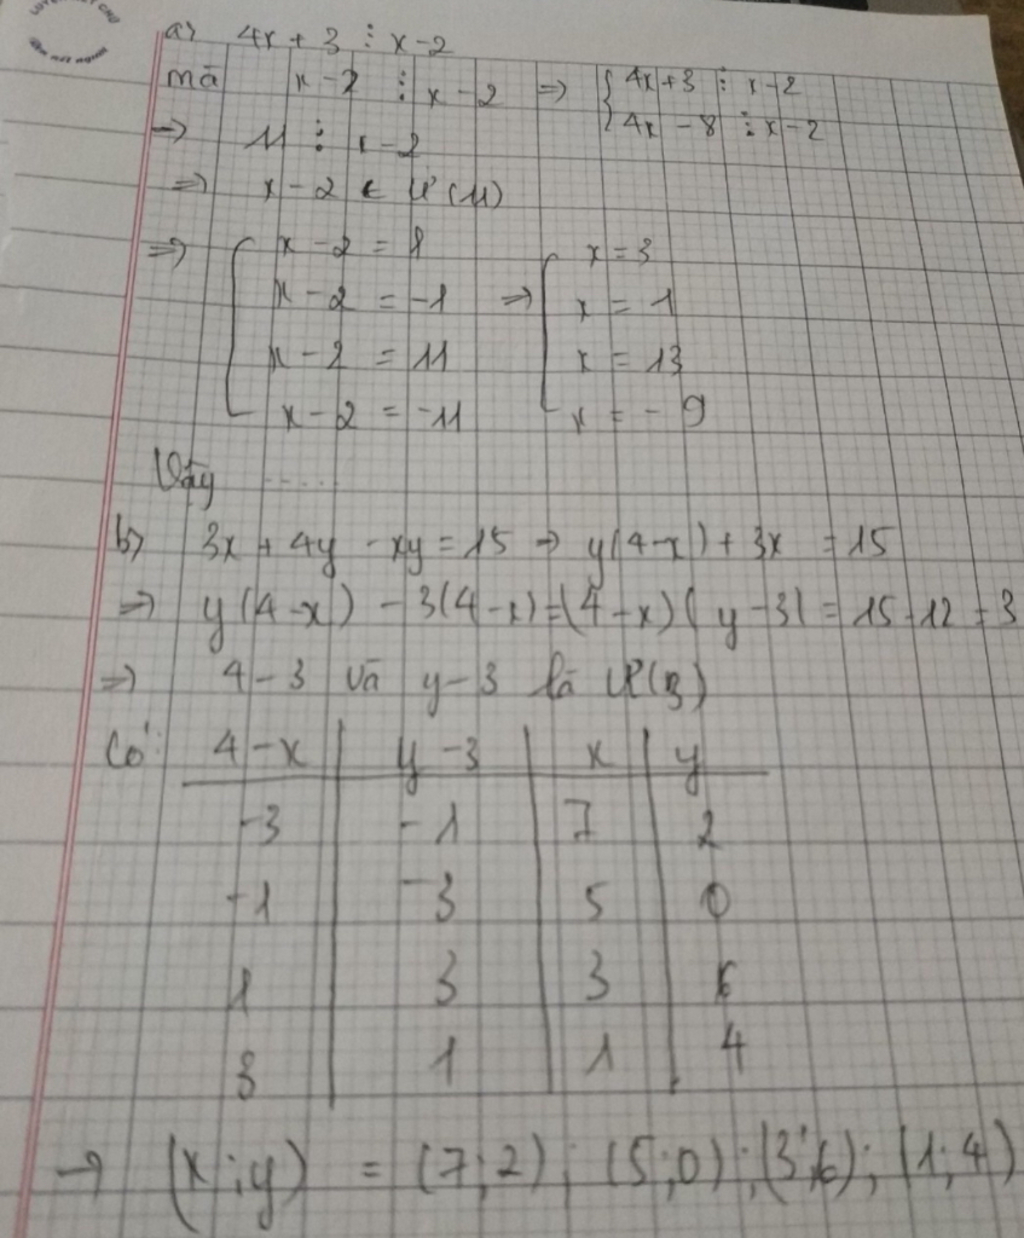 a) 4x + 3 ⋮ x - 2
mà x - 2 ⋮ x - 2 => { 4x + 3 ⋮ x - 2
{ 4x - 8 ⋮ x - 2
=> 11 ⋮ x - 2
=> x - 2 ∈ Ư(11)
=> [ x - 2 = 1 [ x = 3
x - 2 = -1 => x = 1
x - 2 = 11 x = 13
x - 2 = -11 x = -9
Vậy .....
b) 3x + 4y - xy = 15 => y(4-x) + 3x = 15
=> y(4-x) - 3(4-x) = (4-x)(y-3) = 15 - 12 = 3
=> 4 - 3 và y - 3 là Ư(3)
Có: 4 - x | y - 3 | x | y
-3 | -1 | 7 | 2
-1 | -3 | 5 | 0
1 | 3 | 3 | 6
3 | 1 | 1 | 4
=> (x;y) = (7;2); (5;0); (3;6); (1;4)